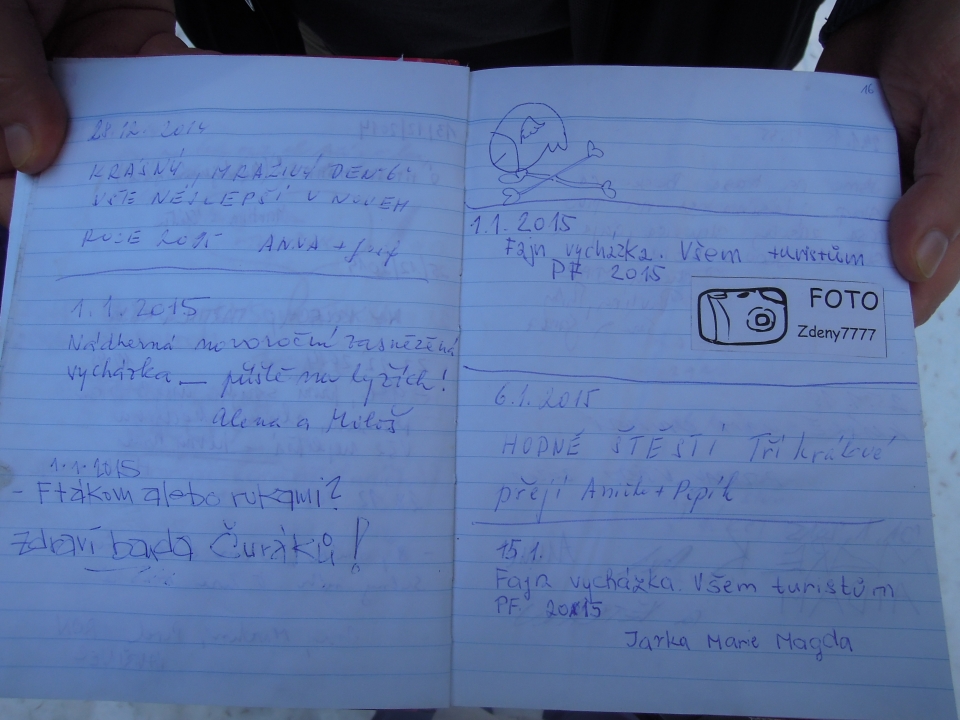 28.12. 2014
KRÁSNÝ, MRAZIVÝ DEN
VŠE NEJLEPŠÍ V NOVÉM
ROCE 2015 ANNA +
1.1.2015
Nádherná novoroční zasněžená
vycházka — příště na lyžích!
Alena a Miloš
1.1.2015
- Ftákom alebo rukami?
Zdraví banda Čuráků!
16
1.1. 2015
Fajn vycházka. Všem turistům
PF 2015
FOTO
Zdeny7777
6.1. 2015
HODNĚ ŠTĚSTÍ Tří králové
přejí Anička + Pepík
15.1.
Fajn vycházka. Všem turistům
PF. 2015
Jarka Marie Magda